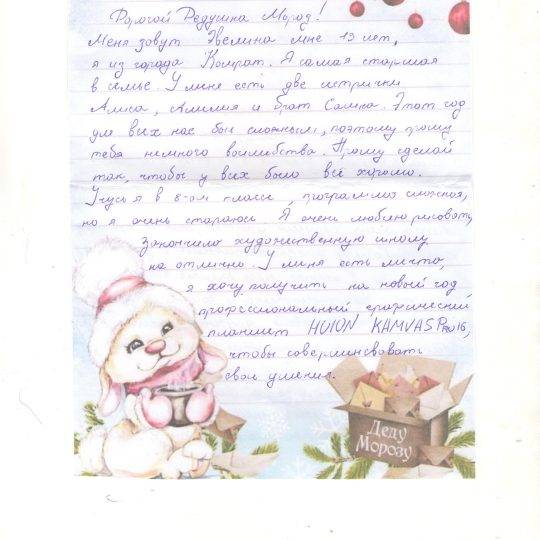 Дорогой Дедушка Мороз!
Меня зовут Эвелина мне 13 лет,
я из города Комрат. Я самая старшая
в семье. У меня есть две сестрички
Алиса, Амилия и брат Самка. Этот год
для всех нас был сложным, поэтому прошу
тебя немного волшебства. Прошу сделай
так, чтобы у всех было всё хорошо.
Учусь я в 8-ом классе, программа сложная,
но я очень стараюсь. Я очень люблю рисовать,
закончила художественную школу
на отлично. У меня есть мечта,
я хочу получить на новый год
профессиональный графический
планшет HUION KAMVAS Pro 16,
чтобы совершенствовать
свои умения.
Деду
Морозу